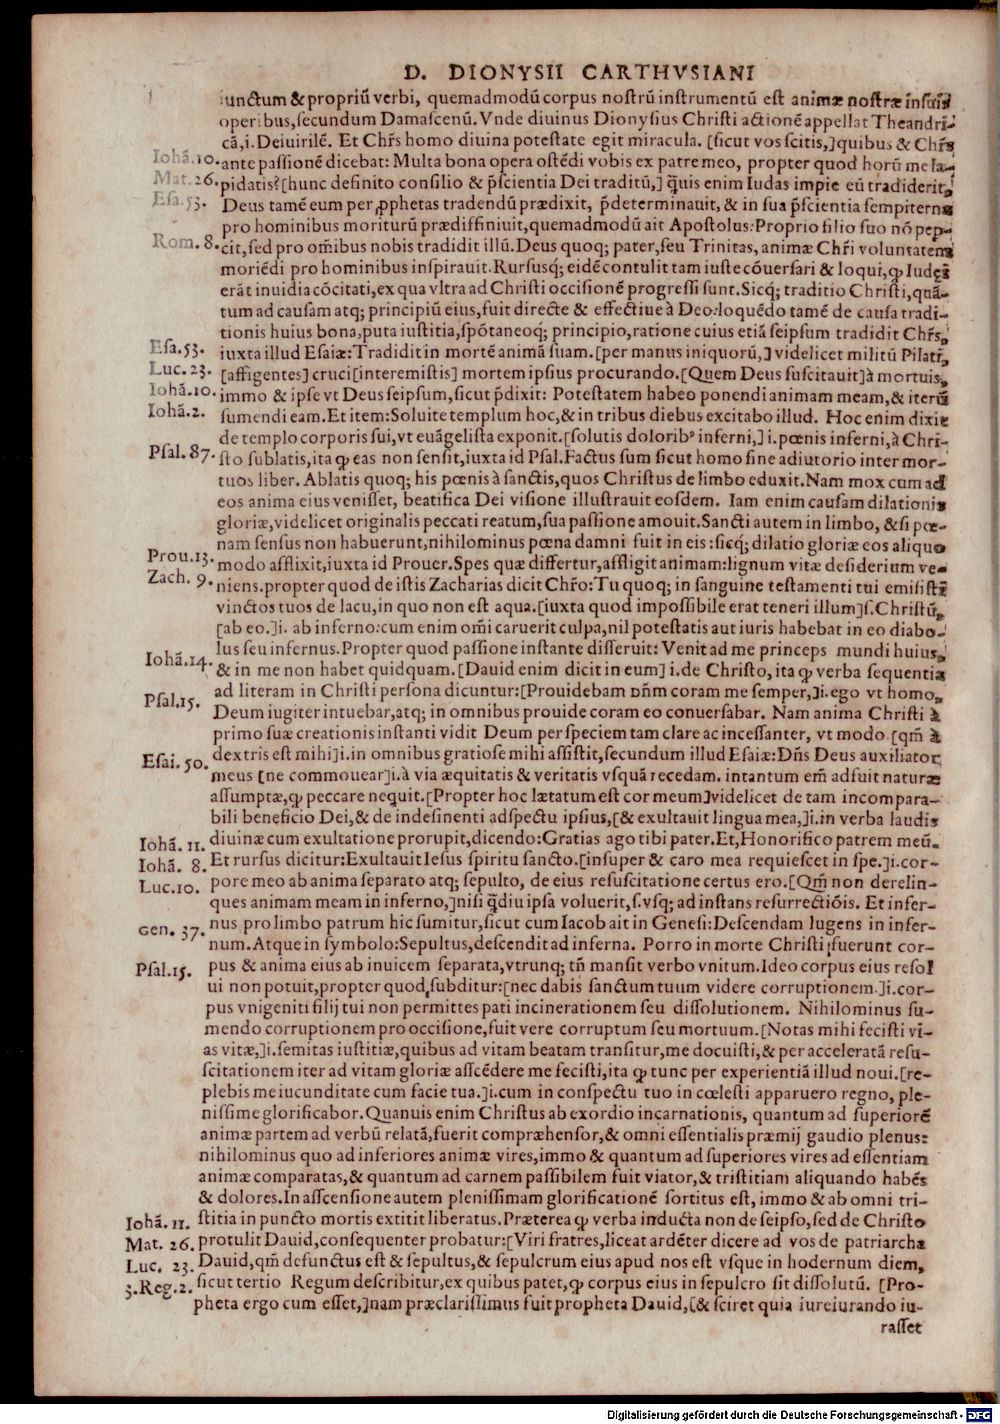 D. DIONYSII CARTHVSIANI
iunctum & propriũ verbi, quemadmodũ corpus nostrũ instrumentũ est animæ nostræ in suis
operibus, secundum Damascenũ. Vnde diuinus Dionysius Christi actionẽ appellat Theandri-
cã, i. Deiuirilẽ. Et Chr̃s homo diuina potestate egit miracula. [sicut vos scitis,] quibus & Chr̃s
Iohã. 10. ante passionẽ dicebat: Multa bona opera ostẽdi vobis ex patre meo, propter quod horũ me la-
Mat. 26. pidatis? [hunc definito consilio & p̃scientia Dei traditũ,] q̃uis enim Iudas impie eũ tradiderit,
Esa. 53. Deus tamẽ eum per ꝓphetas tradendũ prædixit, p̃determinauit, & in sua p̃scientia sempiterna
pro hominibus moriturũ prædiffiniuit, quemadmodũ ait Apostolus: Proprio filio suo nõ pep-
Rom. 8. cit, sed pro om̃ibus nobis tradidit illũ. Deus quoq; pater, seu Trinitas, animæ Chr̃i voluntatem
moriẽdi pro hominibus inspirauit. Rursusq; eidẽ contulit tam iuste cõuersari & loqui, ꝙ Iudęi
erãt inuidia cõcitati, ex qua vltra ad Christi occisionẽ progressi sunt. Sicq; traditio Christi, quã-
tum ad causam atq; principiũ eius, fuit directe & effectiue à Deo: loquẽdo tamẽ de causa tradi-
tionis huius bona, puta iustitia, spõtaneoq; principio, ratione cuius etiã seipsum tradidit Chr̃s,
Esa. 53. iuxta illud Esaiæ: Tradidit in mortẽ animã suam. [per manus iniquorũ,] videlicet militũ Pilati,
Luc. 23. [affigentes] cruci [interemistis] mortem ipsius procurando. [Quem Deus suscitauit] à mortuis,
Iohã. 10. immo & ipse vt Deus seipsum, sicut p̃dixit: Potestatem habeo ponendi animam meam, & iterũ
Iohã. 2. sumendi eam. Et item: Soluite templum hoc, & in tribus diebus excitabo illud. Hoc enim dixit
de templo corporis sui, vt euãgelista exponit. [solutis dolorib⁹ inferni,] i. pœnis inferni, à Chri-
Psal. 87. sto sublatis, ita ꝙ eas non sensit, iuxta id Psal. Factus sum sicut homo sine adiutorio inter mor-
tuos liber. Ablatis quoq; his pœnis à sanctis, quos Christus de limbo eduxit. Nam mox cum ad
eos anima eius venisset, beatifica Dei visione illustrauit eosdem. Iam enim causam dilationis
gloriæ, videlicet originalis peccati reatum, sua passione amouit. Sancti autem in limbo, & si pœ-
nam sensus non habuerunt, nihilominus pœna damni fuit in eis: sicq; dilatio gloriæ eos aliquo
Prou. 13. modo afflixit, iuxta id Prouer. Spes quæ differtur, affligit animam: lignum vitæ desiderium ve-
Zach. 9. niens. propter quod de istis Zacharias dicit Chr̃o: Tu quoq; in sanguine testamenti tui emisisti
vinctos tuos de lacu, in quo non est aqua. [iuxta quod impossibile erat teneri illum] s. Christũ,
[ab eo.] i. ab inferno: cum enim om̃i caruerit culpa, nil potestatis aut iuris habebat in eo diabo-
lus seu infernus. Propter quod passione instante disseruit: Venit ad me princeps mundi huius,
Iohã. 14. & in me non habet quidquam. [Dauid enim dicit in eum] i. de Christo, ita ꝙ verba sequentia
ad literam in Christi persona dicuntur: [Prouidebam dñm coram me semper,] i. ego vt homo,
Psal. 15. Deum iugiter intuebar, atq; in omnibus prouide coram eo conuersabar. Nam anima Christi à
primo suæ creationis instanti vidit Deum per speciem tam clare ac incessanter, vt modo [qm̃ à
dextris est mihi] i. in omnibus gratiose mihi assistit, secundum illud Esaiæ: Dñs Deus auxiliator
Esai. 50. meus [ne commouear] i. à via æquitatis & veritatis vsquã recedam. intantum em̃ adfuit naturæ
assumptæ, ꝙ peccare nequit. [Propter hoc lætatum est cor meum] videlicet de tam incompara-
bili beneficio Dei, & de indesinenti adspectu ipsius, [& exultauit lingua mea,] i. in verba laudis
Iohã. 11. diuinæ cum exultatione prorupit, dicendo: Gratias ago tibi pater. Et, Honorifico patrem meũ.
Iohã. 8. Et rursus dicitur: Exultauit Iesus spiritu sancto. [insuper & caro mea requiescet in spe.] i. cor-
Luc. 10. pore meo ab anima separato atq; sepulto, de eius resuscitatione certus ero. [Qm̃ non derelin-
ques animam meam in inferno,] nisi q̃diu ipsa voluerit, s. vsq; ad instans resurrectiõis. Et infer-
Gen. 37. nus pro limbo patrum hic sumitur, sicut cum Iacob ait in Genesi: Descendam lugens in infer-
num. Atque in symbolo: Sepultus, descendit ad inferna. Porro in morte Christi fuerunt cor-
Psal. 15. pus & anima eius ab inuicem separata, vtrunq; tñ mansit verbo vnitum. Ideo corpus eius resol
ui non potuit, propter quod subditur: [nec dabis sanctum tuum videre corruptionem.] i. cor-
pus vnigeniti filij tui non permittes pati incinerationem seu dissolutionem. Nihilominus su-
mendo corruptionem pro occisione, fuit vere corruptum seu mortuum. [Notas mihi fecisti vi-
as vitæ,] i. semitas iustitiæ, quibus ad vitam beatam transitur, me docuisti, & per acceleratã resu-
scitationem iter ad vitam gloriæ asscẽdere me fecisti, ita ꝙ tunc per experientiã illud noui. [re-
plebis me iucunditate cum facie tua.] i. cum in conspectu tuo in cœlesti apparuero regno, ple-
nissime glorificabor. Quanuis enim Christus ab exordio incarnationis, quantum ad superiorẽ
animæ partem ad verbũ relatã, fuerit compræhensor, & omni essentialis præmij gaudio plenus:
nihilominus quo ad inferiores animæ vires, immo & quantum ad superiores vires ad essentiam
animæ comparatas, & quantum ad carnem passibilem fuit viator, & tristitiam aliquando habẽs
& dolores. In asscensione autem plenissimam glorificationẽ sortitus est, immo & ab omni tri-
Iohã. 11. stitia in puncto mortis extitit liberatus. Præterea ꝙ verba inducta non de seipso, sed de Christo
Mat. 26. protulit Dauid, consequenter probatur: [Viri fratres, liceat ardẽter dicere ad vos de patriarcha
Luc. 23. Dauid, qm̃ defunctus est & sepultus, & sepulcrum eius apud nos est vsque in hodernum diem,
3. Reg. 2. sicut tertio Regum describitur, ex quibus patet, ꝙ corpus eius in sepulcro sit dissolutũ. [Pro-
pheta ergo cum esset,] nam præclarissimus fuit propheta Dauid, [& sciret quia iureiurando iu-
rasset
Digitalisierung gefördert durch die Deutsche Forschungsgemeinschaft - DFG